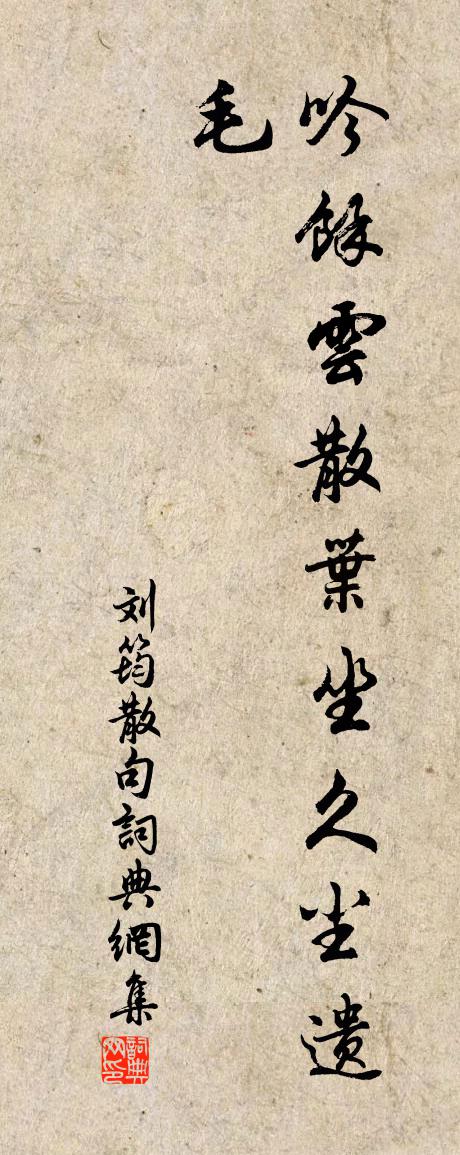 吟餘雲散葉坐久尘遺
毛
刘筠散句詞典網集
詞典网印